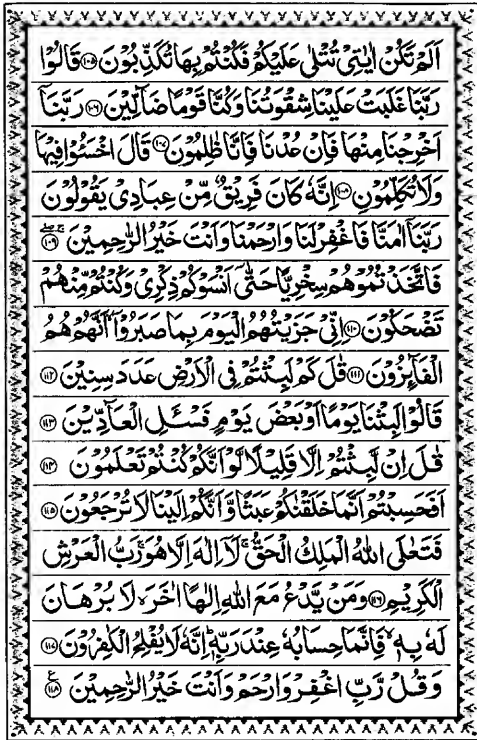 اَلَمْ تَكُنْ اٰيٰتِيْ تُتْلٰى عَلَيْكُمْ فَكُنْتُمْ بِهَا تُكَذِّبُوْنَ ﴿۱۰۵﴾ قَالُوْا
رَبَّنَا غَلَبَتْ عَلَيْنَا شِقْوَتُنَا وَكُنَّا قَوْمًا ضَآلِّيْنَ ﴿۱۰۶﴾ رَبَّنَآ
اَخْرِجْنَا مِنْهَا فَاِنْ عُدْنَا فَاِنَّا ظٰلِمُوْنَ ﴿۱۰۷﴾ قَالَ اخْسَـُٔوْا فِيْهَا
وَلَا تُكَلِّمُوْنِ ﴿۱۰۸﴾ اِنَّهٗ كَانَ فَرِيْقٌ مِّنْ عِبَادِيْ يَقُوْلُوْنَ
رَبَّنَآ اٰمَنَّا فَاغْفِرْ لَنَا وَارْحَمْنَا وَاَنْتَ خَيْرُ الرّٰحِمِيْنَ ﴿۱۰۹﴾
فَاتَّخَذْتُمُوْهُمْ سِخْرِيًّا حَتّٰٓى اَنْسَوْكُمْ ذِكْرِيْ وَكُنْتُمْ مِّنْهُمْ
تَضْحَكُوْنَ ﴿۱۱۰﴾ اِنِّيْ جَزَيْتُهُمُ الْيَوْمَ بِمَا صَبَرُوْٓا اَنَّهُمْ هُمُ
الْفَآىِٕزُوْنَ ﴿۱۱۱﴾ قٰلَ كَمْ لَبِثْتُمْ فِي الْاَرْضِ عَدَدَ سِنِيْنَ ﴿۱۱۲﴾
قَالُوْا لَبِثْنَا يَوْمًا اَوْ بَعْضَ يَوْمٍ فَسْـَٔلِ الْعَآدِّيْنَ ﴿۱۱۳﴾
قٰلَ اِنْ لَّبِثْتُمْ اِلَّا قَلِيْلًا لَّوْ اَنَّكُمْ كُنْتُمْ تَعْلَمُوْنَ ﴿۱۱۴﴾
اَفَحَسِبْتُمْ اَنَّمَا خَلَقْنٰكُمْ عَبَثًا وَّاَنَّكُمْ اِلَيْنَا لَا تُرْجَعُوْنَ ﴿۱۱۵﴾
فَتَعٰلَى اللّٰهُ الْمَلِكُ الْحَقُّ ۚ لَآ اِلٰهَ اِلَّا هُوَ ۚ رَبُّ الْعَرْشِ
الْكَرِيْمِ ﴿۱۱۶﴾ وَمَنْ يَّدْعُ مَعَ اللّٰهِ اِلٰهًا اٰخَرَ ۙ لَا بُرْهَانَ
لَهٗ بِهٖ ۙ فَاِنَّمَا حِسَابُهٗ عِنْدَ رَبِّهٖ ؕ اِنَّهٗ لَا يُفْلِحُ الْكٰفِرُوْنَ ﴿۱۱۷﴾
وَقُلْ رَّبِّ اغْفِرْ وَارْحَمْ وَاَنْتَ خَيْرُ الرّٰحِمِيْنَ ﴿۱۱۸﴾